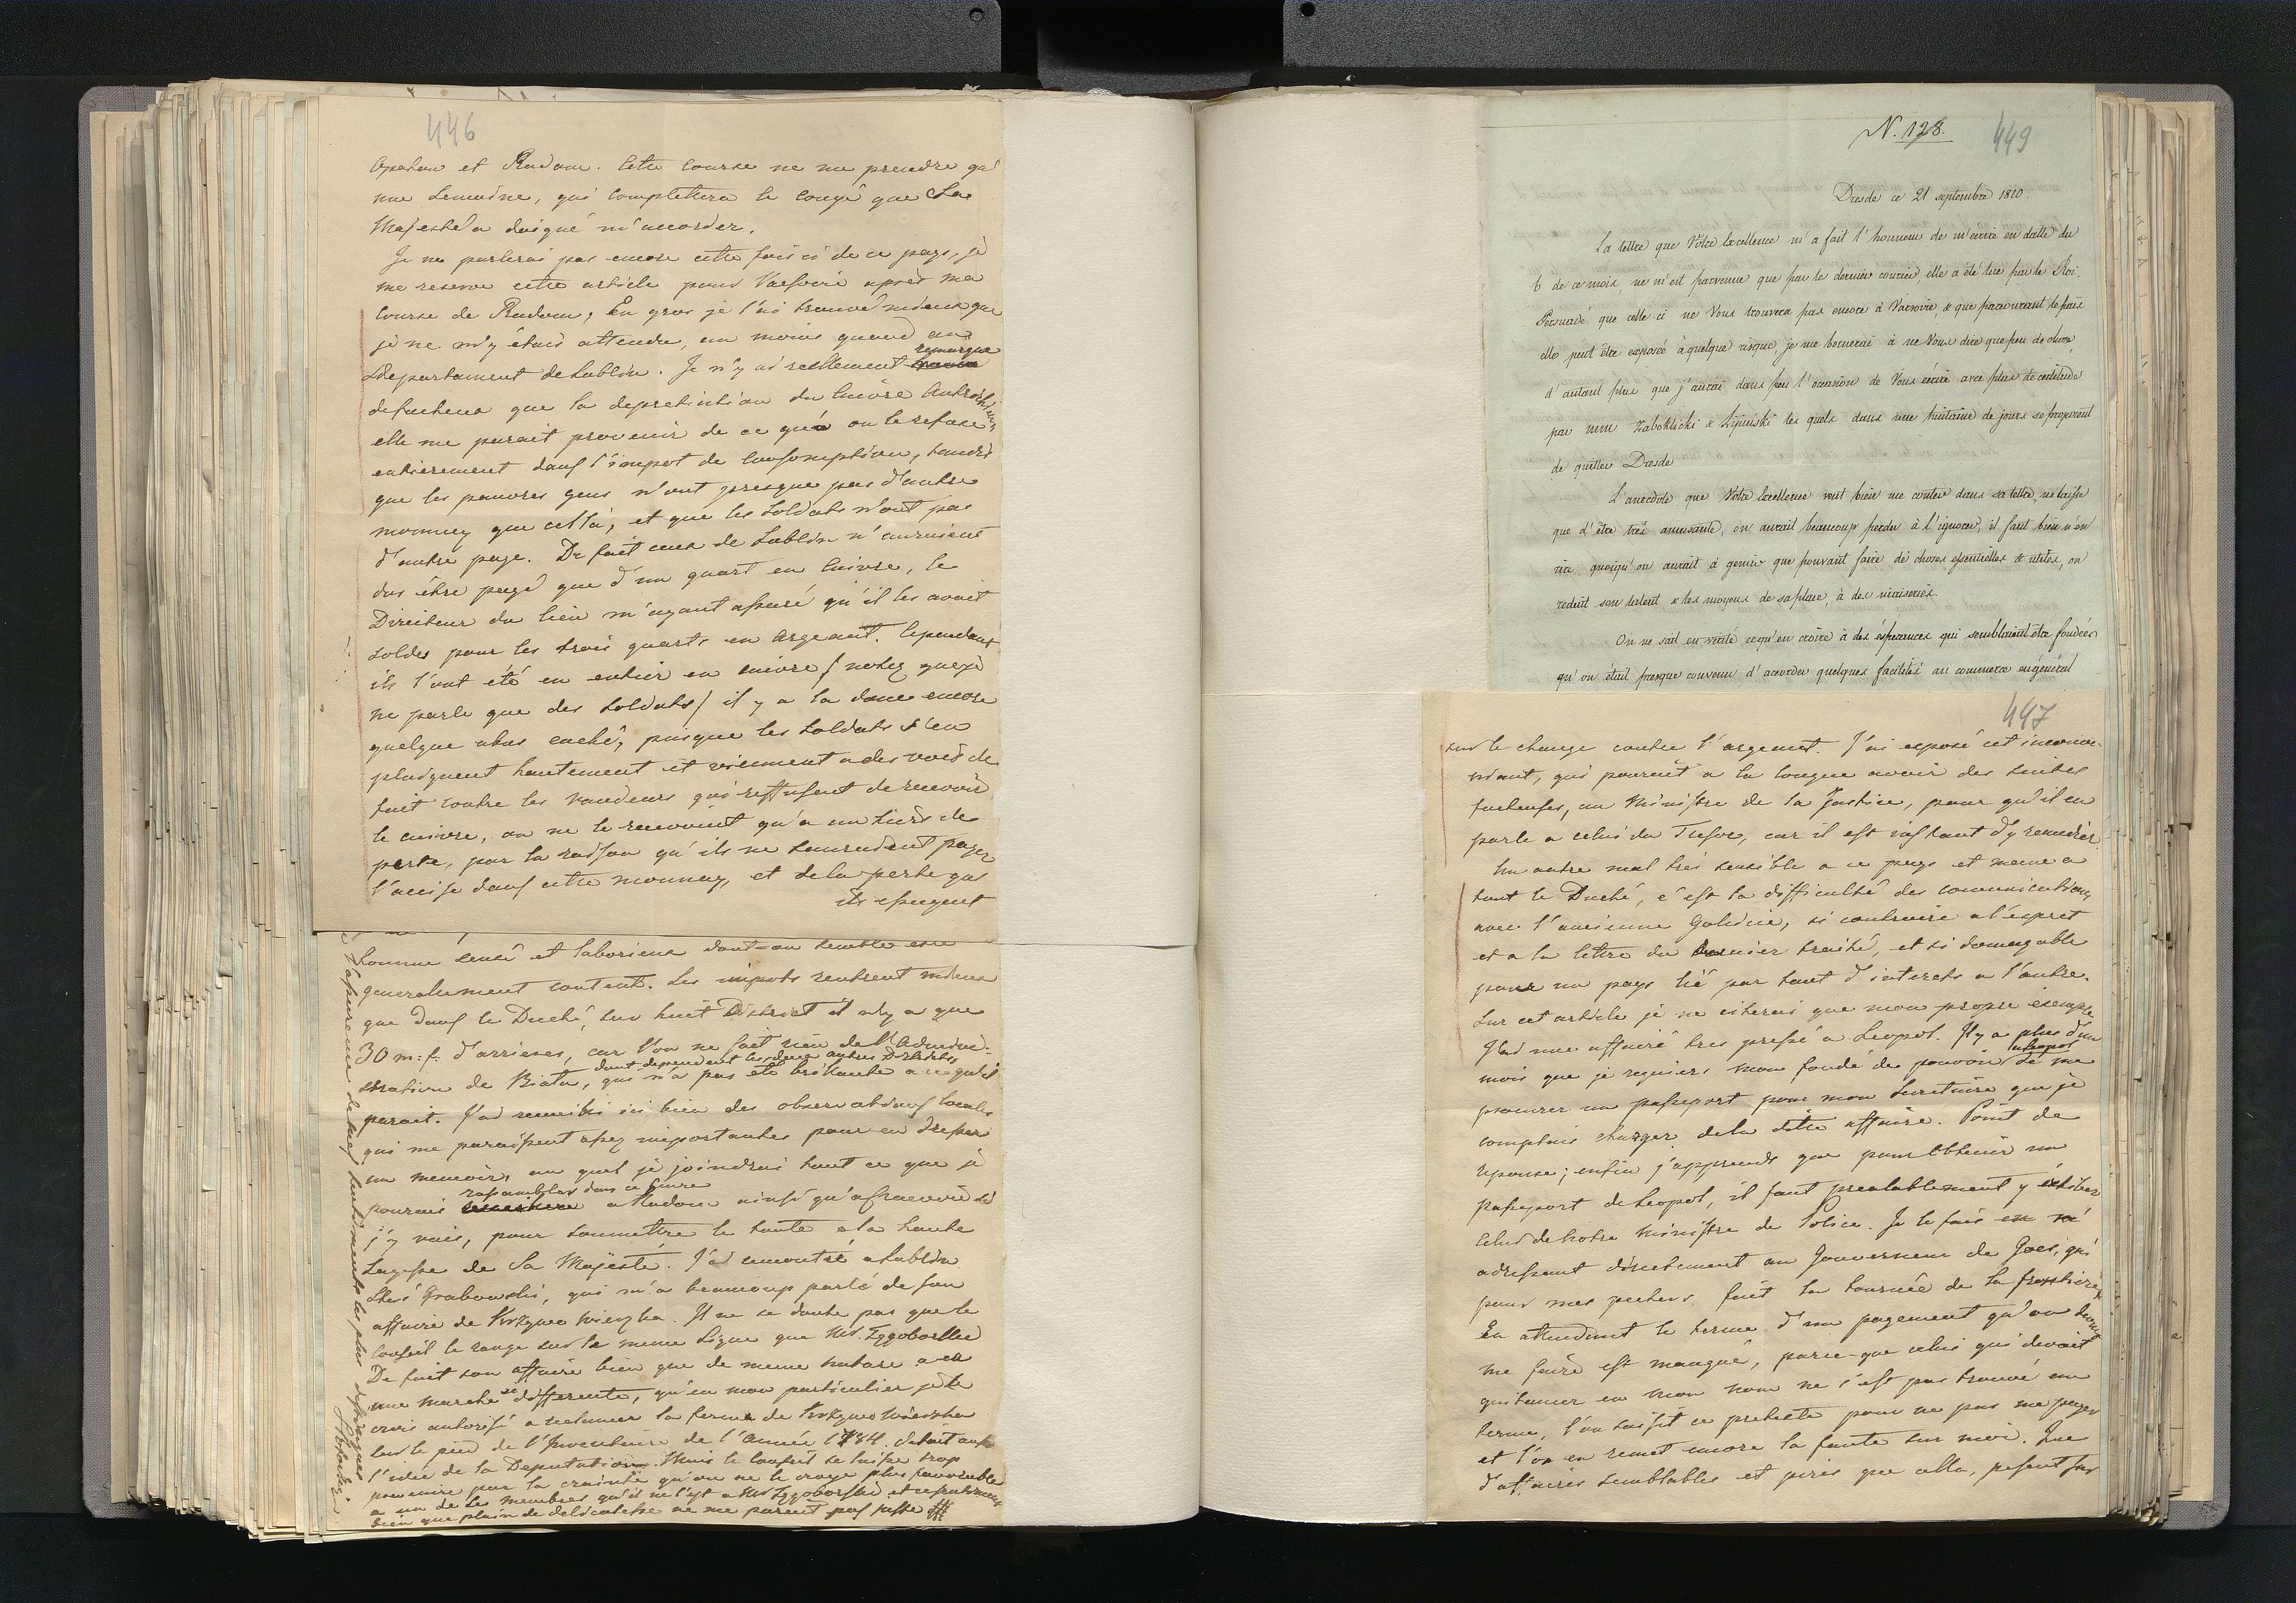 446
Opatow et Radom. Cette course ne me prendra qu'
une semaine, qui complettera le congé que Sa
Majesté a daigné m'accorder.
Je ne parlerai pas encore cette fois ci de ce pays, je
me reserve cette article pour Varsovie après ma
course de Radom; En gros je l'ai trouvé mieux que
je ne m'y étais attendu, au moins quand au
Departament de Lublin. Je n'y ai reellement remarqué
de facheux que la depretiation du cuivre Autrichien,
elle me parait provenir de ce qu'on le refuse
entierement dans l'impot de consomption, tandis
que les pauvres gens n'ont presque pas d'autre
monnay que cella, et que les soldats n'ont pas
d'autre paye. De fait ceux de Lublin n'auraient
dus être payé que d'un quart en cuivre, le
Directeur du lieu m'ayant assuré qu'il les avait
soldés pour les trois quarts en argeant. Cependant
ils l'ont été en entier en cuivre / notez que je
ne parle que des soldats / il y a la donc encore
quelque abus caché, puisque les soldats s'en
plaignent hautement et viennent a des voies de
fait contre les vandeurs qui reffusent de recevoir
le cuivre, ou ne le recevoient qu'a un tiers de
perte, par la raison qu'ils ne sauraient payer
l'accise dans cette monnay, et de la perte qu'
ils essuyent
homme sensé et laborieux dont on semble etre
generalement content. Les impots rentrent mieux
que dans le Duché, sur huit District il n'y a que
30 m: f: d'arrieres, car l'on ne sait rien de l'Admini-
stration de Biala, dont dependent les deux autres Districts
qui n'a pas été brillante a ce qu'il
parait. J'ai recueilli ici bien des observations locales
qui me paraissent assez importantes pour en dresser
un memoire, au quel je joindrai tout ce que je
pourai rassembler dans ce genre a Radom ainsi qu'a Cracovie si
j'y vais, pour soumettre le toute a la haute
Sagesse de Sa Majesté. J'ai rencontré a Lublin
Grabowski, qui m'a beaucoup parlé de son
affaire de Krzywowierzba. Il ne se doute pas que le
Conseil le range sur la meme ligne que Mr.
De fait son affaire bien que de meme nature a eu
une marche si differente, qu'en mon particulier je le
crois autorisé a reclamer la ferme de
sur le pied de l'Inventaire de l'Année 1784. C'etait aussi
l'idée de la Deputation. Mais le Conseil se laisse trop
par la crainte qu'on ne le croye plus favorable
a un de ses membres qu'il ne l'est a Mr
bien que plain de delicatesse ne me parait pas juste
449
N. 128.
Dresde ce 21 septembre 1810.
La lettre que Votre Excellence m'a fait l'honneur de m'écrire en datte du
6 de ce mois, ne m'est parvenue que par le dernier courier, elle a été lue par le Roi.
Persuadé que celle ci ne Vous trouvera pas encore à Varsovie, & que parcourant le païs
elle peut être exposée à quelque risque, je me bornerai à ne Vous dire que peu de chose,
d'autant plus que j'aurai dans peu l'occasion de Vous écrire avec plus de certitude
par mm Zaboklicki & Lipinski les quels dans une huitaine de jours se proposent
de quitter Dresde
L'anecdote que Votre Excellence veut bien me conter dans sa lettre, ne laisse
que d'être très amusante, on aurait beaucoup perdu à l'ignorer, il faut bien n'en
rire quoiqu'on aurait à gemir que pouvant faire de choses essentielles & utiles, on
reduit son talent & les moyens de sa place, à des niaiseries.
On ne sait en vérité ce qu'en croire à des éspérances qui semblaient être fondées
qu'on était presque convenu d'acorder quelques facilités au commerce en général
447
sur le change contre l'argeant. J'ai exposé cet inconve-
niant, qui pourait a la longue avoir des suites
facheuses, au Ministre de la Justice, pour qu'il en
parle a celui du Tresor, car il est instant d'y remedier.
Un autre mal très sensible a ce pays et meme a
tout le Duché, c'est la difficulté des communications
avec l'ancienne Galicie, si contraire a l'esprit
et a la lettre du dernier traité, et si domagable
pour un pays lié par tant d'interets a l'autre.
Sur cet article je ne citerai que mon propre exemple
J'ai une affaire tres pressé a Leopol. Il y a plus d'un
mois que je requiers mon fondé de pouvoir a Leopol de me
procurer un passeport pour mon Secretaire que je
comptais charger de la ditte affaire. Point de
reponse; enfin j'apprends que pour obtenir un
passeport de Leopol, il faut prealablement y exhiber
celui de notre Ministre de Police. Je le fais en m'
adressant directement au Gouverneur de Goes, qui
pour mes pechers fait la tournée de la frontiere.
En attendant le terme d'un payement qu'on devait
me faire est manqué, parce-que celui qui devait
quitancer en mon nom ne s'est pas trouvé au
terme, l'on saisit ce pretexte pour ne pas me payer
et l'on en remet encore la faute sur moi. Que
d'affaires semblables et pires que cella, pesent sur